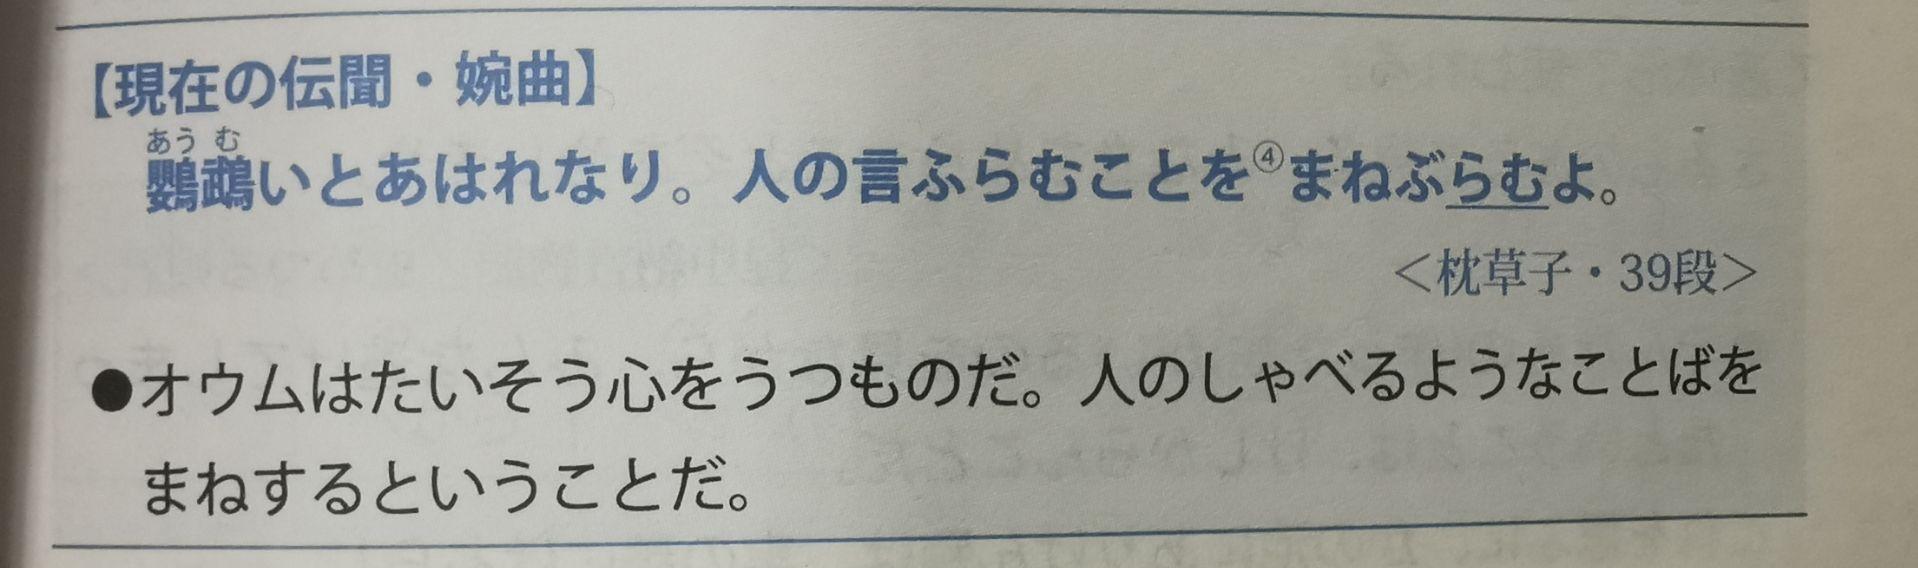 【現在の伝聞・婉曲】
あうむ
鸚鵡いとあはれなり。人の言ふらむことを④まねぶらむよ。
＜枕草子・39段＞
●オウムはたいそう心をうつものだ。人のしゃべるようなことばを
まねするということだ。